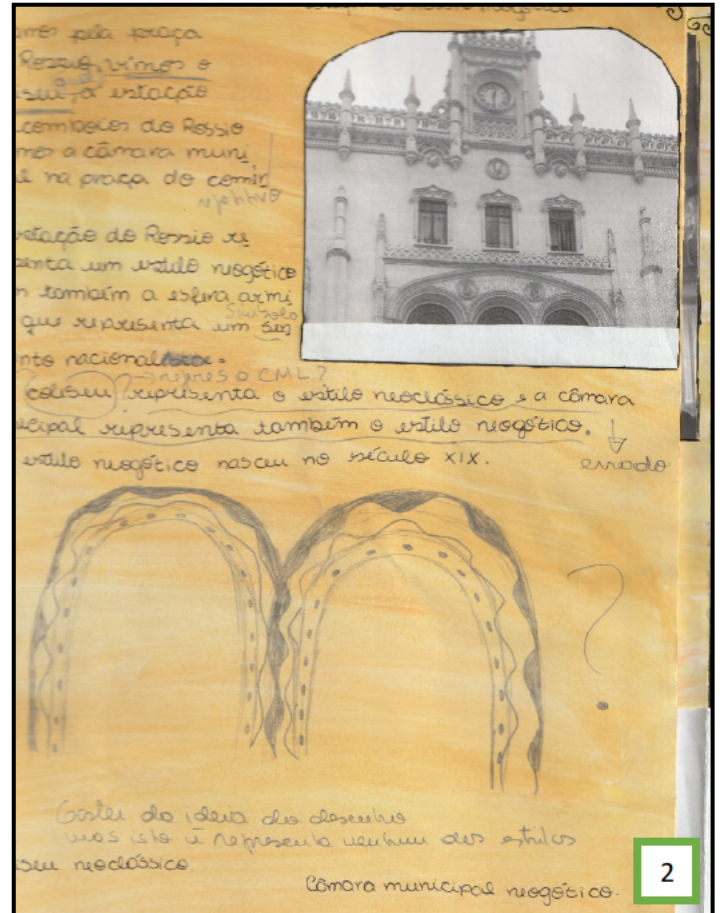 pela praça
Rossio, vimos o
que
a estação
comboios do Rossio
a câmara muni
na praça do comér
Rossio re
senta um estilo neogótico
também a esfera armi
símbolo
que representa um sen
nacional
repres o CML?
coliseu representa o estilo neoclássico e a câmara
representa também o estilo neogótico.
errado
estilo neogótico nasceu no século XIX.
?
Gostei da ideia do desenho
mas isto ñ representa nenhum dos estilos
neoclássico.
Câmara municipal neogótico.
2